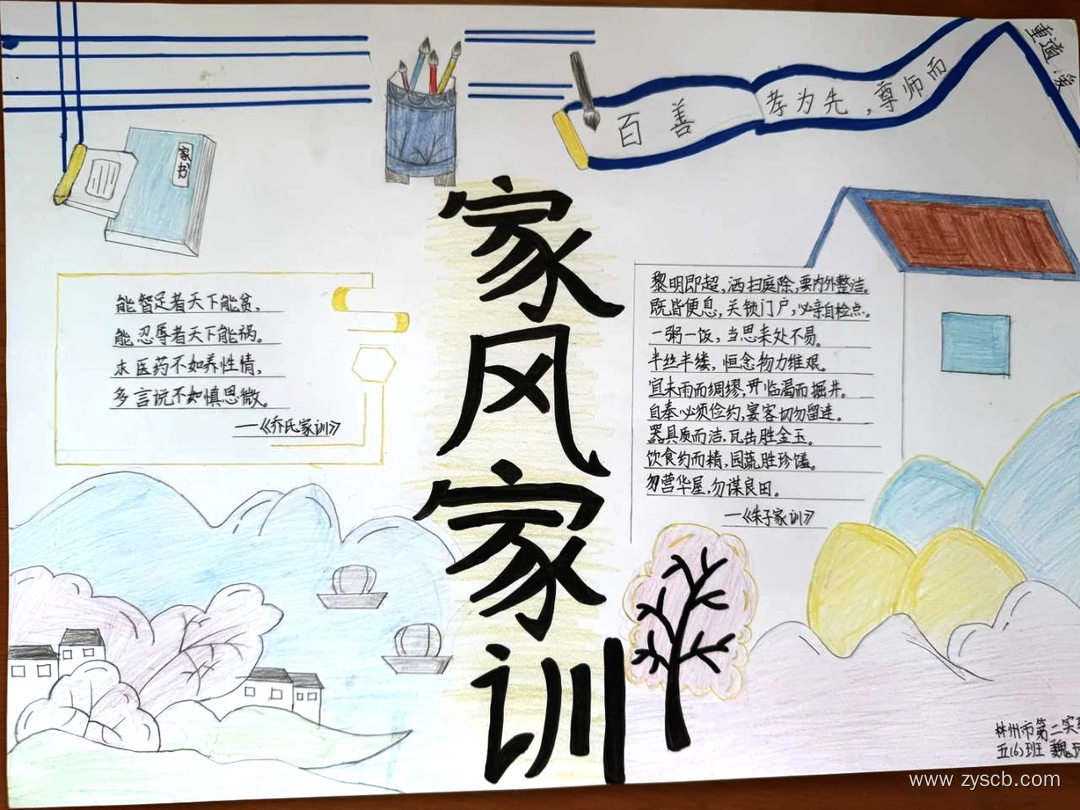 百善孝为先，尊师而
重道，爱
家书
家风家训
能智足者天下能贫，
能忍辱者天下能祸。
求医药不如养性情，
多言说不如慎思微。
—《乔氏家训》
黎明即起，洒扫庭除，要内外整洁。
既昏便息，关锁门户，必亲自检点。
一粥一饭，当思来处不易。
半丝半缕，恒念物力维艰。
宜未雨而绸缪，毋临渴而掘井。
自奉必须俭约，宴客切勿留连。
器具质而洁，瓦缶胜金玉。
饮食约而精，园蔬胜珍馐。
勿营华屋，勿谋良田。
—《朱子家训》
林州市第二实
五(6)班 魏
www.zyscb.com